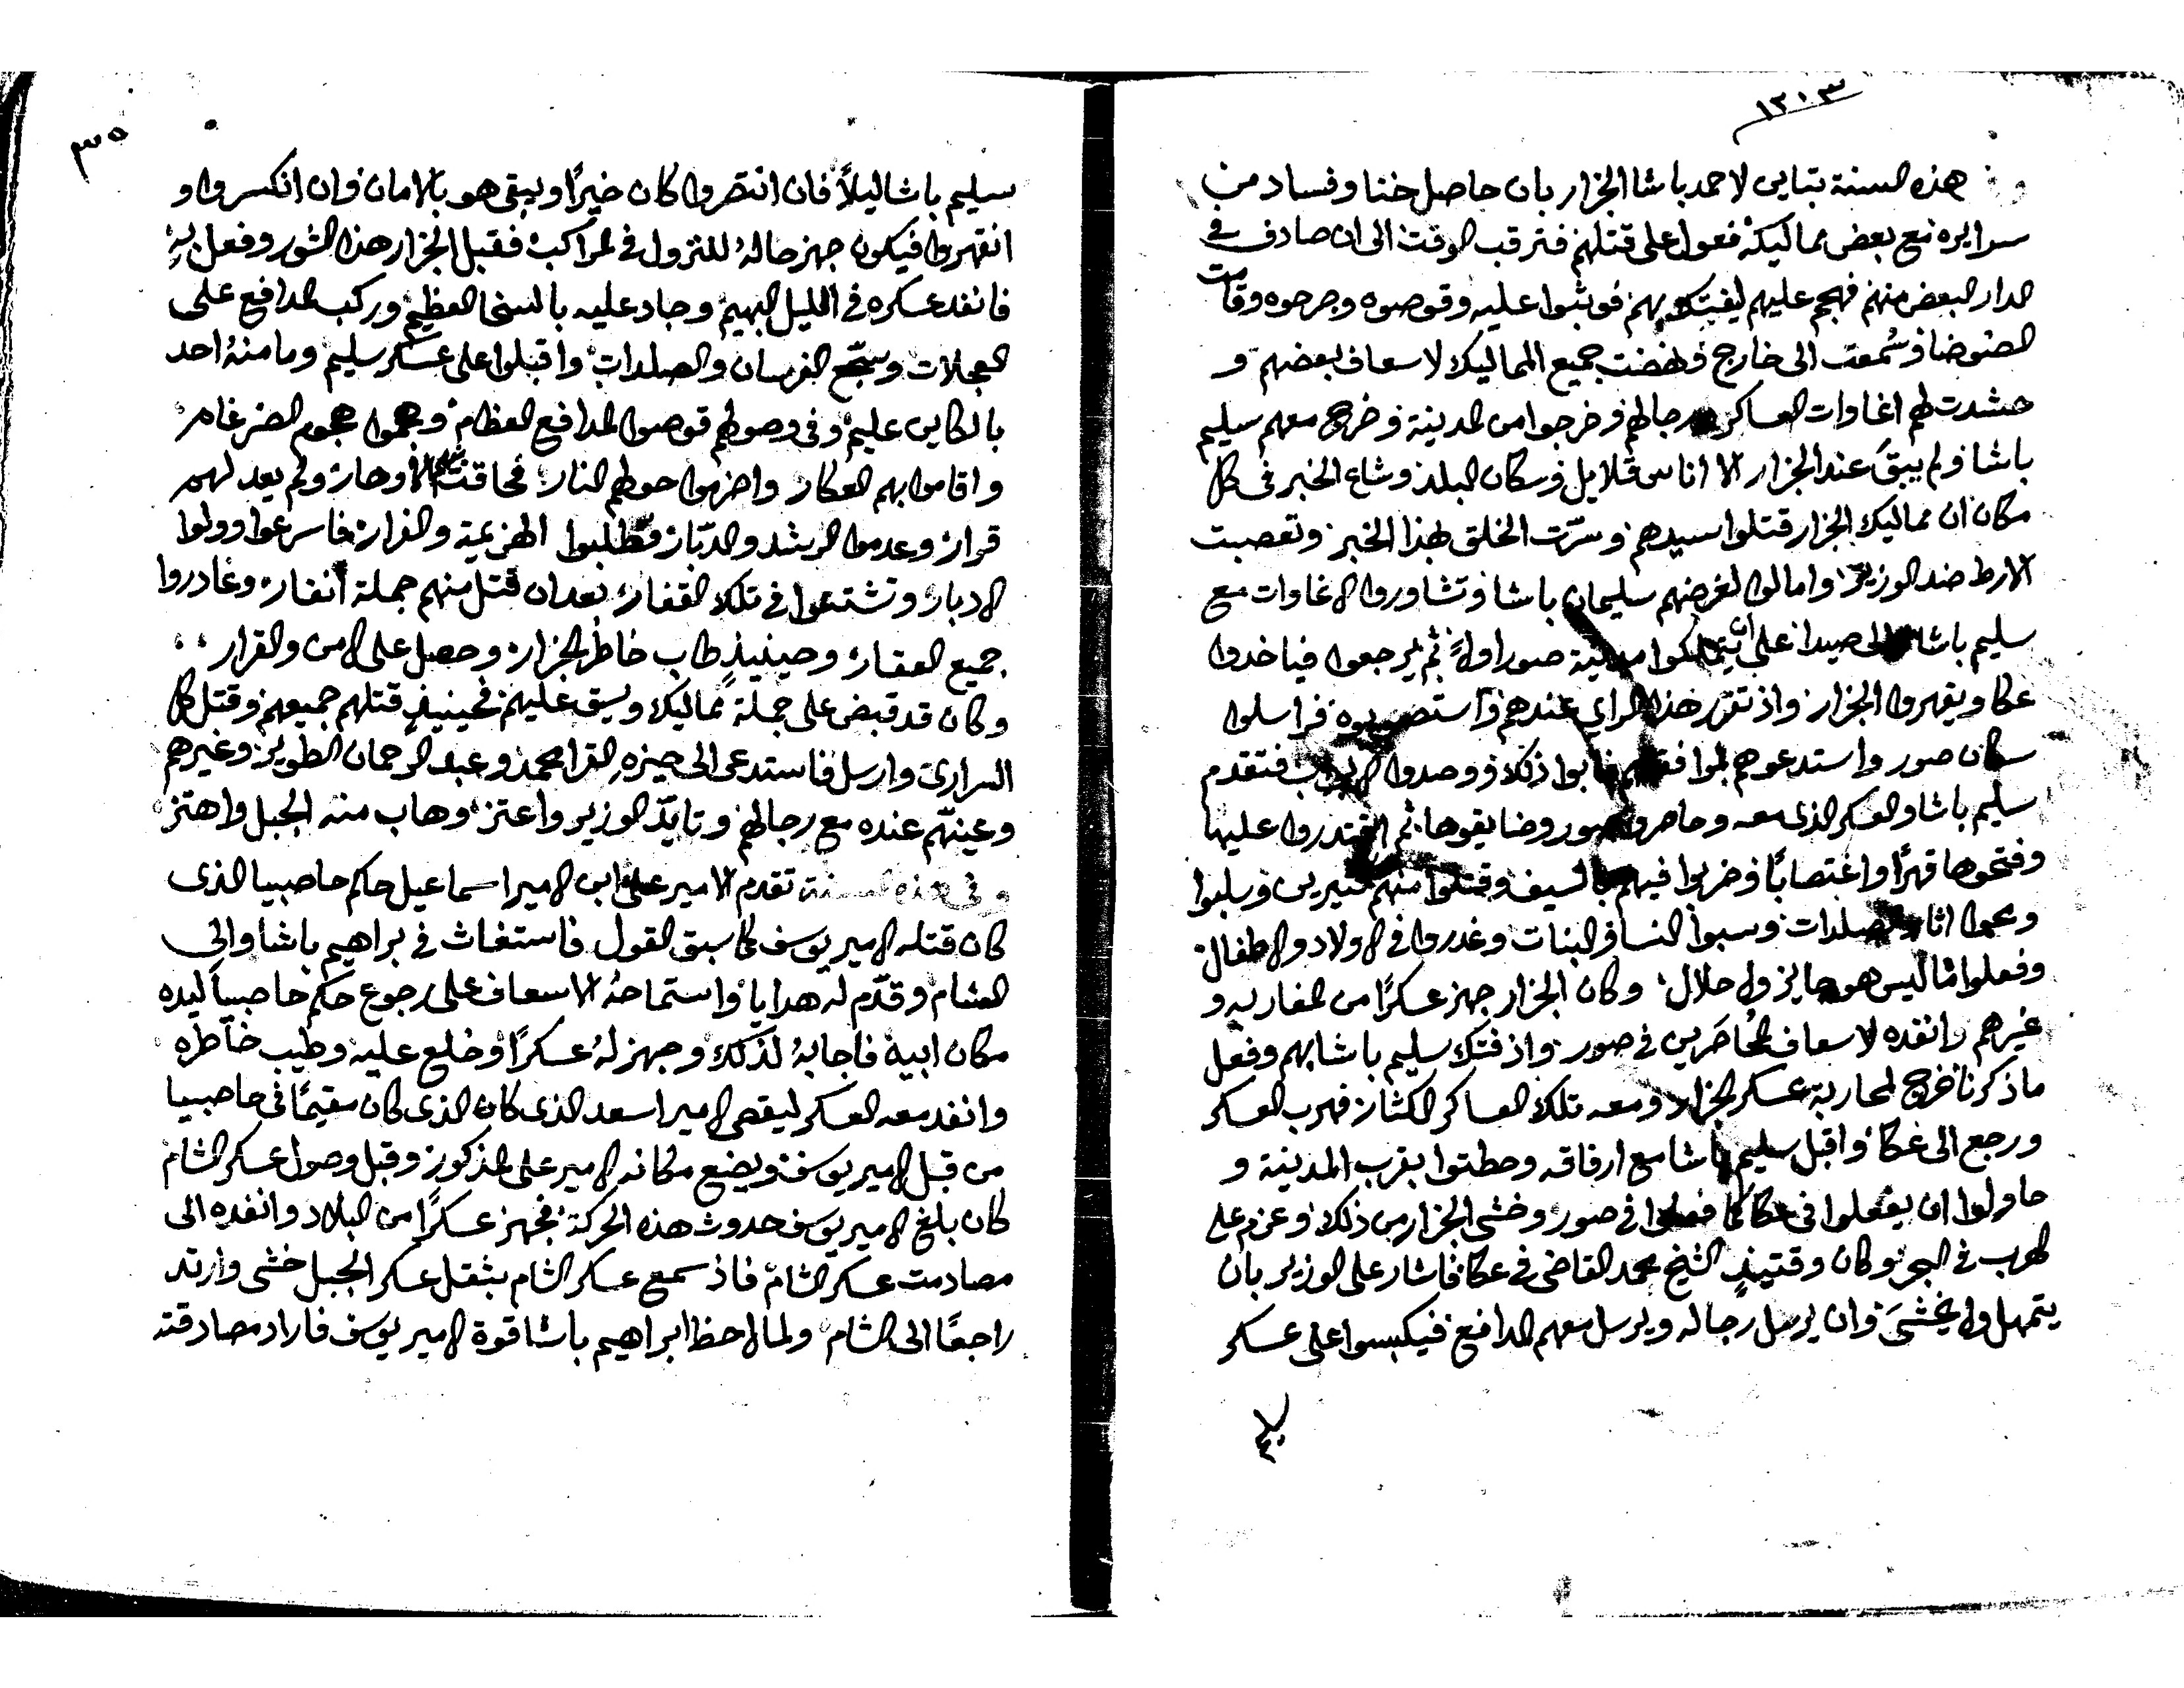 ١٢٠٣
وفي هذه السنة تباين لاحمد باشا الجزار بان حاصل خنا وفساد من
سرايره مع بعض مماليكه فعول على قتلهم فترقب الوقت الى ان صادف في
الدار البعض منهم فهجم عليهم ليفتك بهم فوثبوا عليه وقوصوه وجرحوه وقامت
الضوضا وسُمعت الى خارج فنهضت جميع المماليك لاسعاف بعضهم و
حشدت لهم اغاوات العساكر ورجالهم وخرجوا من المدينة وخرج معهم سليم
باشا ولم يبقَ عند الجزار الا اناس قلايل وسكان البلد وشاع الخبر في كل
مكان ان مماليك الجزار قتلوا سيدهم وسرّت الخلق لهذا الخبر وتعصبت
الارط ضد الوزير وامالوا لغرضهم سليمان باشا وتشاوروا الاغاوات مع
سليم باشا الى صيدا على ان يتملكوا مدينة صور اولاً ثم يرجعوا فياخدوا
عكا ويقهروا الجزار واذ تقرر هذا الراي عندهم واستصوبوه فراسلوا
سكان صور واستدعوهم لموافقتهم فابوا ذلك ووصدوا الابواب فتقدم
سليم باشا والعسكر الذى معه وحاصروا صور وضايقوها ثم اقتدروا عليها
وفتحوها قهرًا واغتصابًا وضربوا فيهم بالسيف وقتلوا منهم كثيرين وسلبوا
وعموا اثار الصلدات وسبوا النسا والبنات وغدروا في الاولاد والاطفال
وفعلوا ما ليس هو جايز ولا حلال وكان الجزار جهز عسكرًا من المغاربه و
غيرهم وانفده لاسعاف المُحاصَرين في صور واذ فتك سليم باشا بهم وفعل
ما ذكرنا خرج لمحاربة عسكر الجزار ومعه تلك العساكر الكثار فهرب العسكر
ورجع الى عكا واقبل سليم باشا مع ارفاقه وحطتوا بقرب المدينة و
حاولوا ان يفعلوا في عكا كما فعلوا في صور وخشى الجزار من ذلك وعزم على
الهرب في البحر وكان وقتيذٍ الشيخ محمد القاضى في عكا فاشار على الوزير بان
يتمهل ولا يخشَى وان يرسل رجاله ويرسل معهم المدافع فيكبسوا على عسكر
سليم
٣٥
سليم باشا ليلاً فان انتصروا كان خيرًا ويبقى هو بالامان وان انكسروا و
انقهروا فيكون جهز حاله للنزول في المراكب فقبل الجزار هذا الشور وفعل به
فانفد عسكره في الليل البهيم وجاد عليه بالسخا العظيم وركب المدافع على
العجلات وشجّع الفرسان والصلدات واقبلوا على عسكر سليم وما منهُ احد
بالكاين عليم وفى وصولهم قوصوا المدافع العظام وهجموا هجوم الضرغام
واقاموا بهم العكار واضرموا حولهم النار فحاقت بهم الاوهار ولم يعد لهم
قرار وعدموا الرشد والدبّار فطلبوا الهزيمة والفرار فاسرعوا وولوا
الادبار وتشتتوا في تلك القفار بعد ان قتل منهم جملة أنفار وغادروا
جميع العقار وحينيذٍ طاب خاطر الجزار وحصل على الامن والقرار
وكان قد قبض على جملة مماليك ويسق عليهم فحينيذٍ قتلهم جميعهم وقتل كل
السرارى وارسل فاستدعى الى حيزهِ القرا محمد وعبد الرحمان الطويل وغيرهم
وعينّهم عنده مع رجالهم وتايدّ الوزير واعتز وهاب منه الجبل واهتز
وفي هذه السنة تقدم الامير على ابن الامير اسماعيل حاكم حاصبيا الذى
كان قتله الامير يوسف كما سبق القول فاستغاث في براهيم باشا والى
الشام وقدّم له هدايا واستماحهُ الاسعاف على رجوع حكم حاصبيا ليده
مكان ابيه فاجابهُ لذلك وجهز لهُ عسكرًا وخلع عليه وطيب خاطره
وانفد معه العسكر ليقصى الامير اسعد الذى كان الذى كان مقيمًا في حاصبيا
من قبل الامير يوسف ويضع مكانه الامير على المذكور وقبل وصول عسكر الشام
كان بلغ الامير يوسف حدوث هذه الحركة فجهز عسكرًا من البلاد وانفده الى
مصادمت عسكر الشام فاذ سمع عسكر الشام بثقل عسكر الجبل خشى وارتد
راجعًا الى الشام ولما لاحظ ابراهيم باشا قوة الامير يوسف فاراد مصادقته